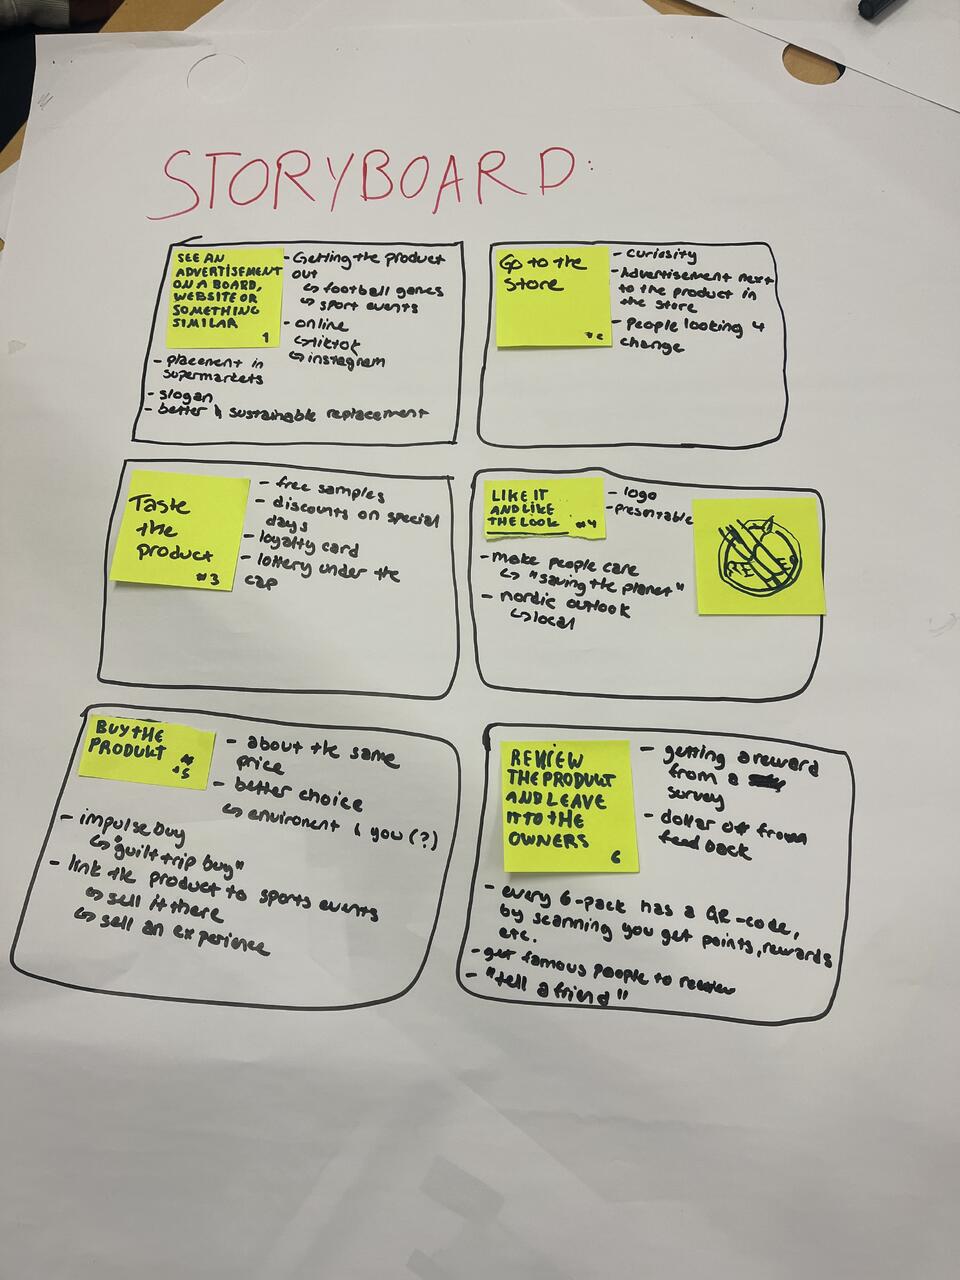 STORYBOARD:
SEE AN
ADVERTISEMENT
ON A BOARD,
WEBSITE OR
SOMETHING
SIMILAR
1
- Getting the product
out
↳ football games
↳ sport events
- online
↳ tiktok
↳ instagram
- placement in
supermarkets
- slogan
- better & sustainable replacement
Go to the
Store
- curiosity
- Advertisement next
to the product in
the store
- People looking 4
change
Taste
the
product
#3
- free samples
- discounts on special
days
- loyalty card
- lottery under the
cap
LIKE IT
AND LIKE
THE LOOK #4
- logo
- presentable
- make people care
↳ "saving the planet"
- nordic outlook
↳ local
BUY THE
PRODUKT #
5
- about the same
price
- better choice
↳ enviroment & you (?)
- impulse buy
↳ "guilt trip buy"
- link the product to sports events
↳ sell it there
↳ sell an experience
REVIEW
THE PRODUKT
AND LEAVE
IT TO THE
OWNERS
6
- getting a reward
from a
survey
- dollar off from
feedback
- every 6-pack has a QR-code,
by scanning you get points, rewards
etc.
- get famous people to review
- "tell a friend"